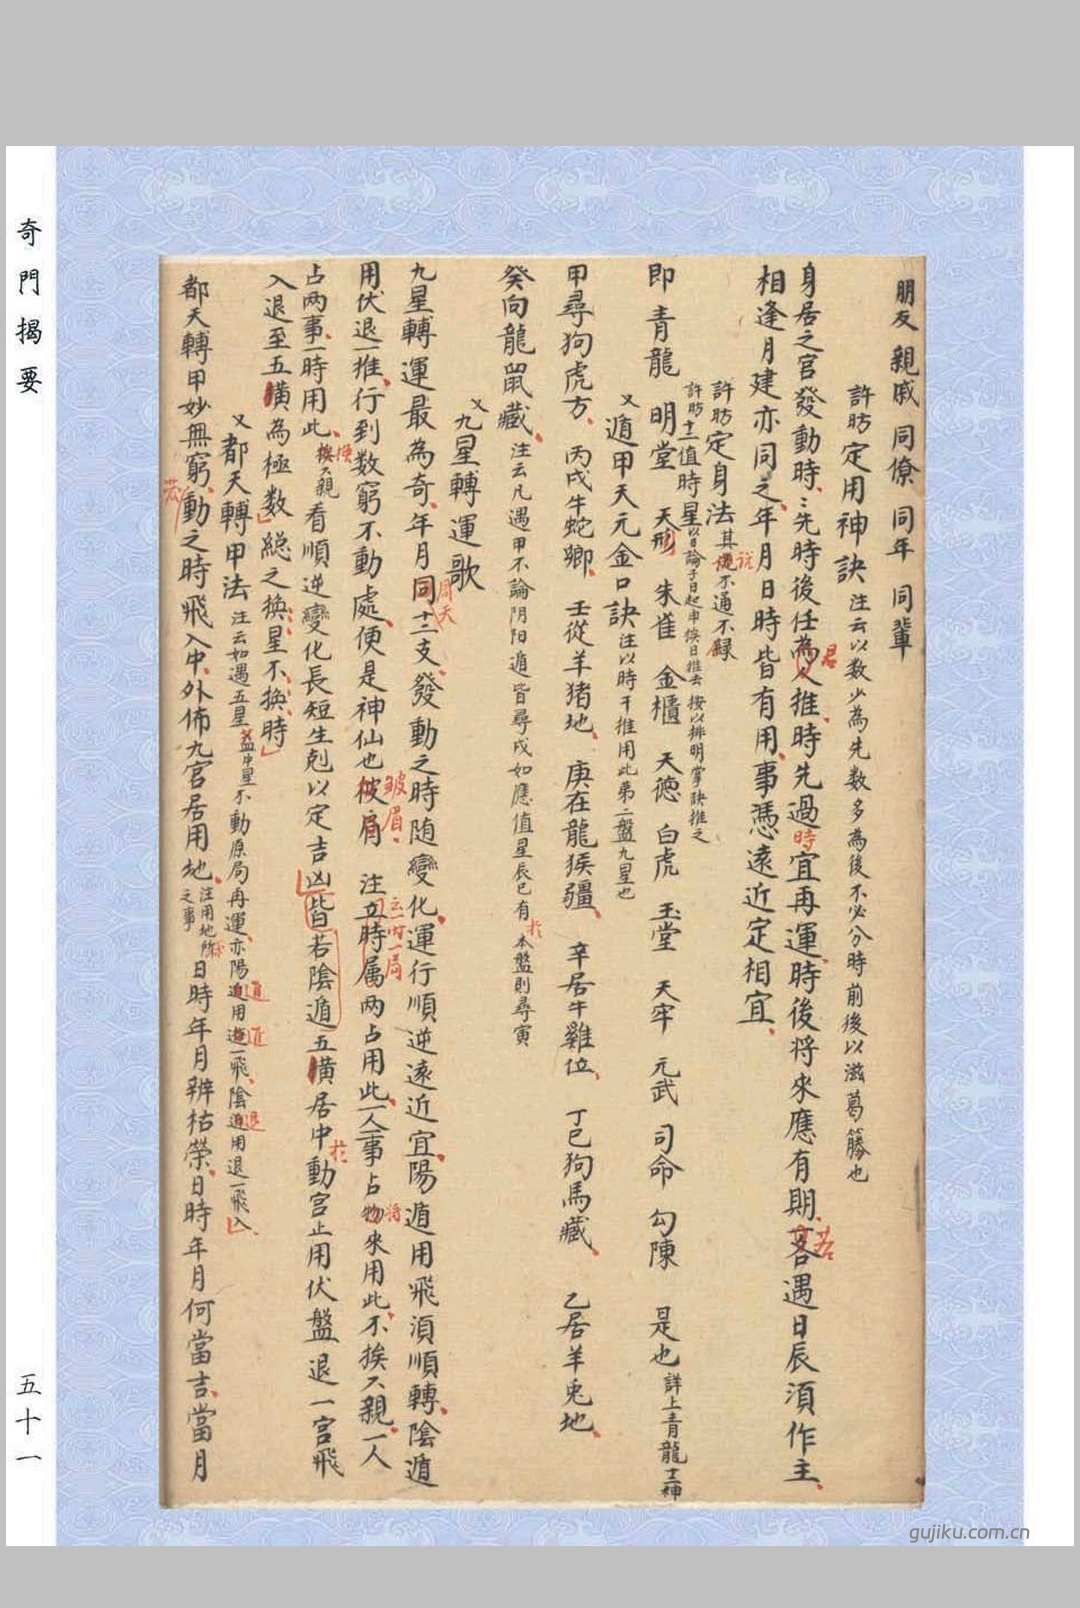 朋友 親戚 同僚 同年 同輩
許昉定用神訣 注云以数少為先数多為後不必分時前後以滋葛籐也
身居之官發動時三先時後任為人推時先過宜再運時後將來應有期客遇日辰須作主
君
時
若
相逢月建亦同之年月日時皆有用事憑遠近定相宜
許昉定身法其不通不録
說
許昉十二值時星以日論子日起申挨日推去 按以排明掌訣推之
即青龍 明堂 天刑 朱雀 金櫃 天德 白虎 玉堂 天牢 元武 司命 勾陳 是也 詳上青龍十二神
又遁甲天元金口訣 注以時干推用此第二盤九星也
甲尋狗虎方 丙戌牛蛇卿 壬從羊猪地 庚在龍猴疆 辛居牛雞位 丁巳狗馬藏 乙居羊兎地
癸向龍鼠藏 注云凡遇甲不論阴阳遁皆尋戌如應值星辰已有本盤則尋寅
於
又九星轉運歌
九星轉運最為奇年月同十二支發動之時随變化運行順逆遠近宜陽遁用飛須順轉陰遁
周天
用伏退一推行到数窮不動處便是神仙也皮肩 注立時属两占用此一人事占物來用此不挨六親一人
皺眉
立一时一局
將
占两事一時用此 挨六親看順逆變化長短生剋以定吉凶皆若陰遁五横居中動宫止用伏盤退一宫飛
於
入退至五横為極数總之換星不換時
又都天轉甲法 注云如遇五星盤中星不動原局再運亦陽遁用進一飛陰遁用退一飛入
遁
進
退
都天轉甲妙無窮動之時飛入中外佈九宫居用地 注用地所之事 日時年月辨枯榮日時年月何當吉當月
若
奇門揭要
五十一
gujiku.com.cn